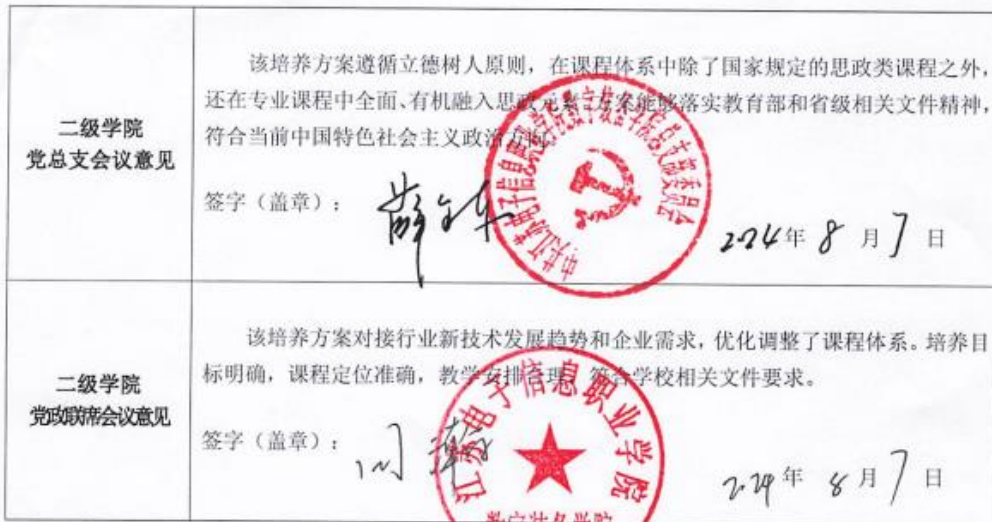 二级学院
党总支会议意见
该培养方案遵循立德树人原则，在课程体系中除了国家规定的思政类课程之外，
还在专业课程中全面、有机融入思政元素，方案能够落实教育部和省级相关文件精神，
符合当前中国特色社会主义政治方向。
签字（盖章）：
2024年 8 月 7 日
二级学院
党政联席会议意见
该培养方案对接行业新技术发展趋势和企业需求，优化调整了课程体系。培养目
标明确，课程定位准确，教学安排合理，符合学校相关文件要求。
签字（盖章）：
江苏电子信息职业学院
数字装备学院
2024年 8 月 7 日